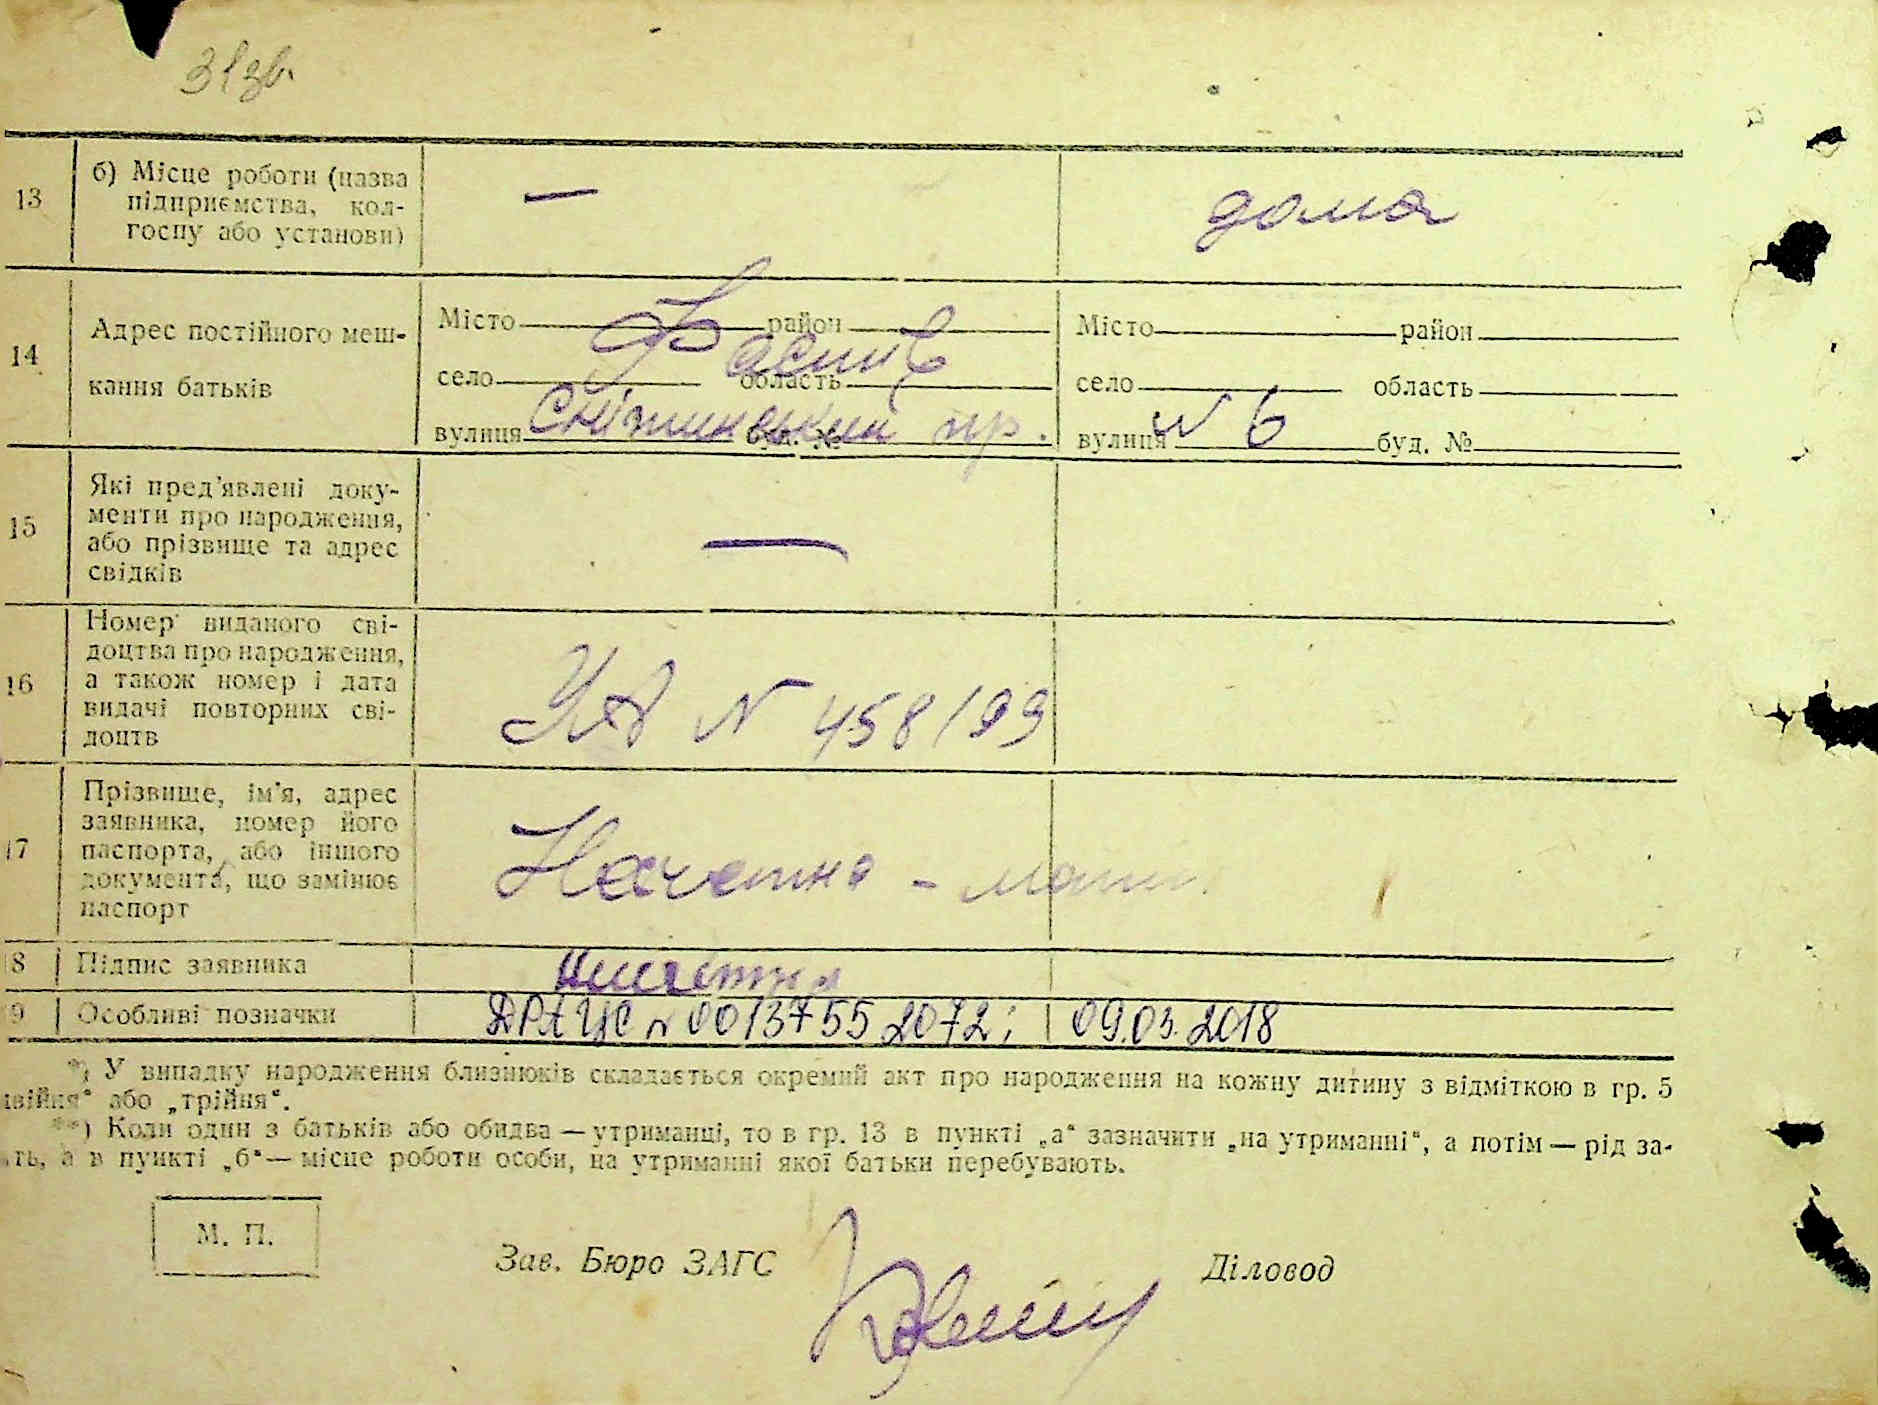 31зв.
13
б) Місце роботи (назва
підприємства, кол-
госпу або установи)
—
дома
14
Адрес постійного меш-
кання батьків
Місто район
село область
вулиця буд. №
Місто район
село область
вулиця № 6 буд. №
15
Які пред'явлені доку-
менти про народження,
або прізвище та адрес
свідків
—
16
Номер виданого сві-
доцтва про народження,
а також номер і дата
видачі повторних сві-
доцтв
УА N 458199
17
Прізвище, ім'я, адрес
заявника, номер його
паспорта, або іншого
документа, що замінює
паспорт
- мати.
8
Підпис заявника
9
Особливі позначки
ДРАЦС N 00137552072; 09.03.2018
*) У випадку народження близнюків складається окремий акт про народження на кожну дитину з відміткою в гр. 5
двійня“ або „трійня“.
**) Коли один з батьків або обидва — утриманці, то в гр. 13 в пункті „а“ зазначити „на утриманні“, а потім — рід за-
ть, а в пункті „б“ — місце роботи особи, на утриманні якої батьки перебувають.
М. П.
Зав. Бюро ЗАГС
Діловод